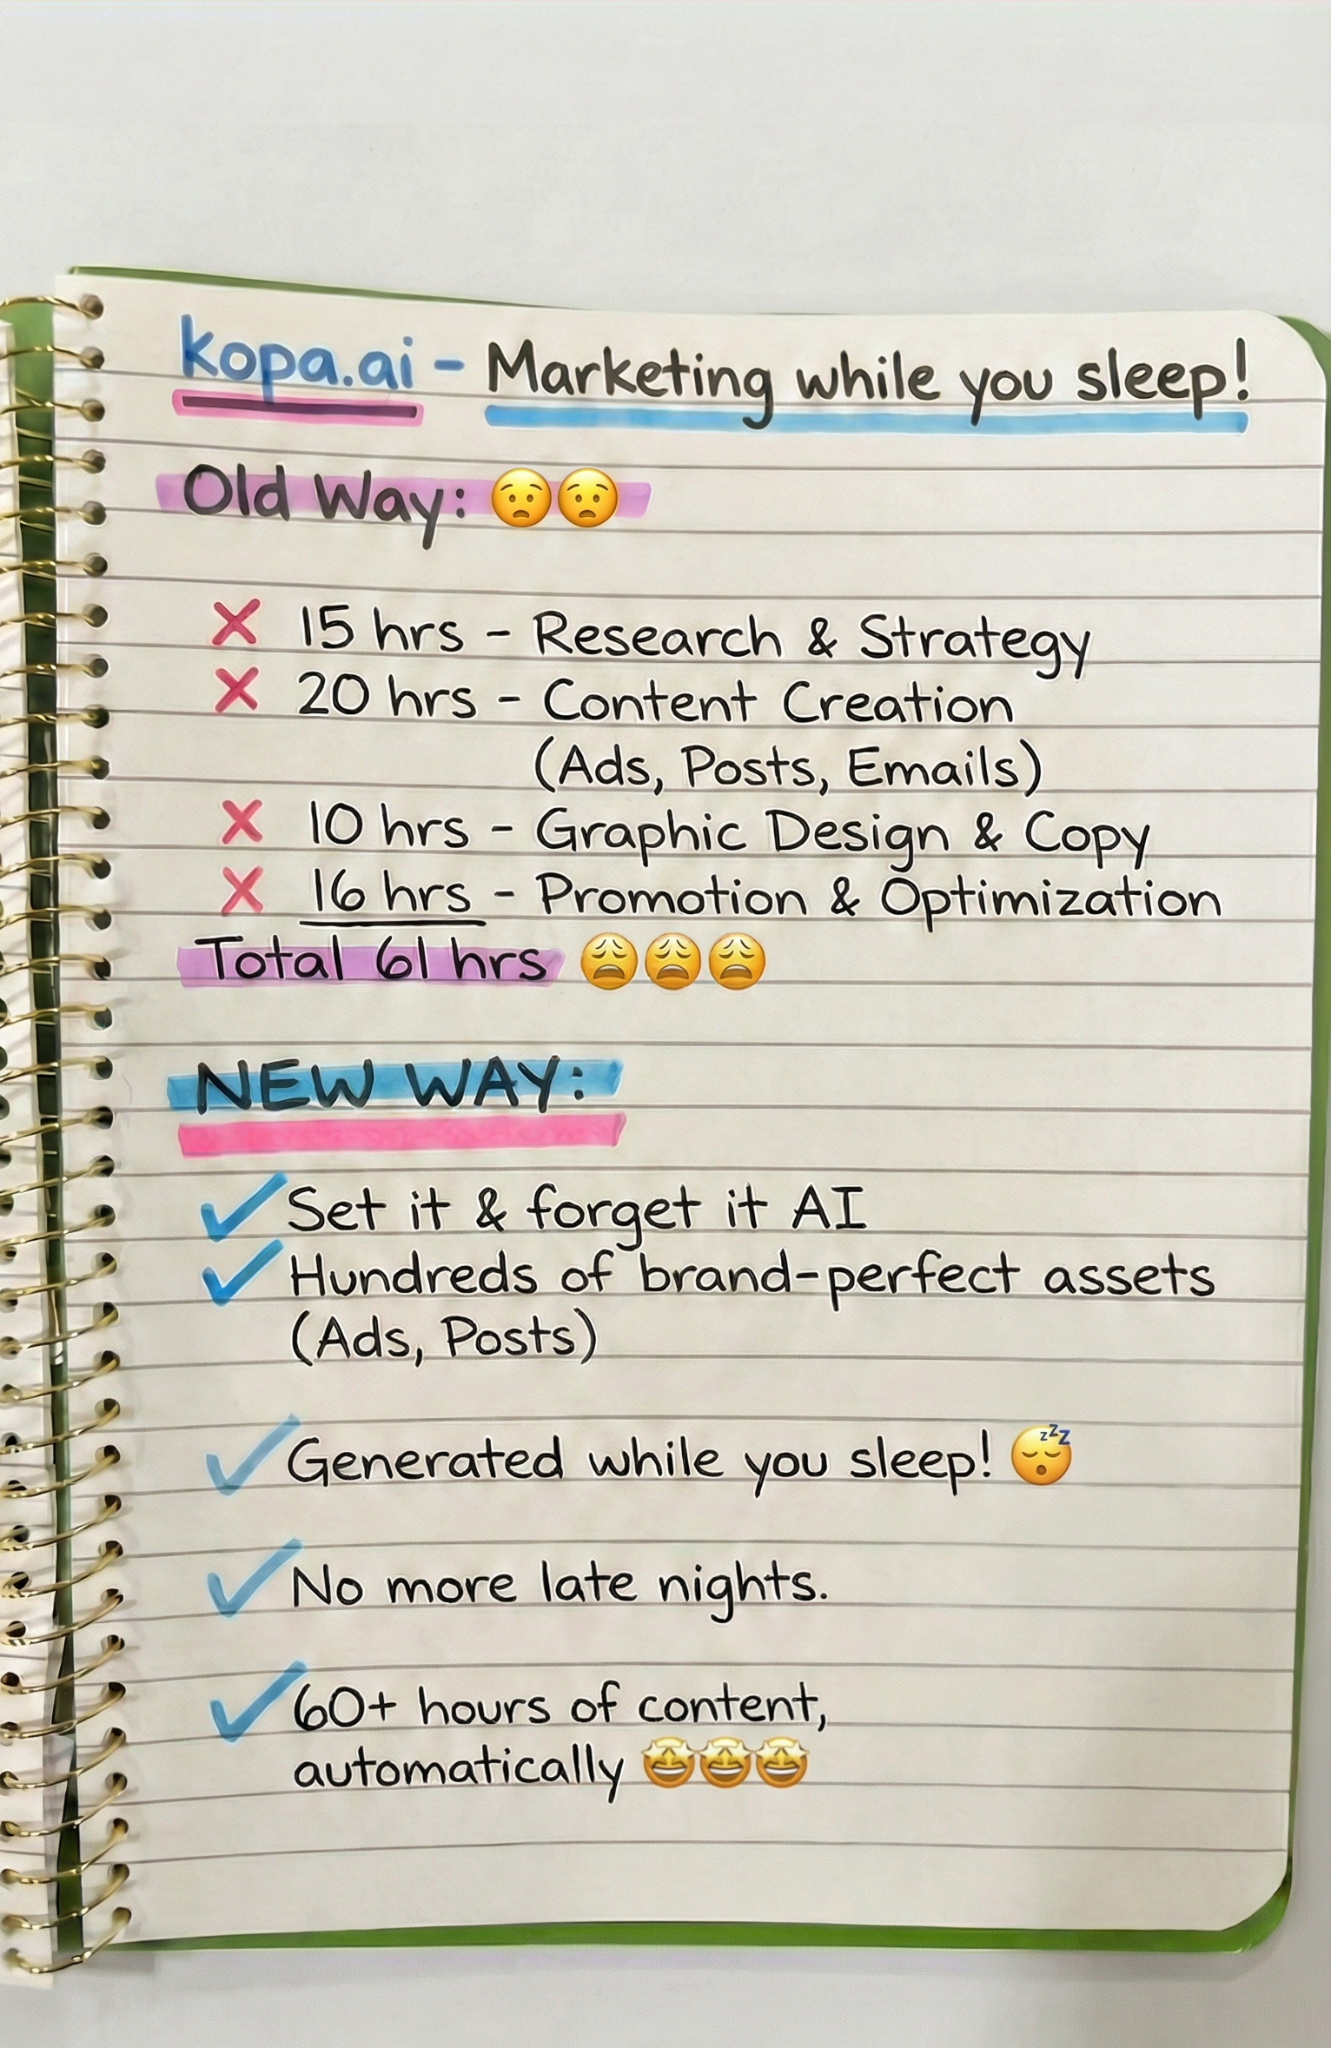 kopa.ai - Marketing while you sleep!
Old Way: 😟😟
❌ 15 hrs - Research & Strategy
❌ 20 hrs - Content Creation
(Ads, Posts, Emails)
❌ 10 hrs - Graphic Design & Copy
❌ 16 hrs - Promotion & Optimization
Total 61 hrs 😩😩😩
NEW WAY:
✓ Set it & forget it AI
✓ Hundreds of brand-perfect assets
(Ads, Posts)
✓ Generated while you sleep! 😴
✓ No more late nights.
✓ 60+ hours of content,
automatically 🤩🤩🤩